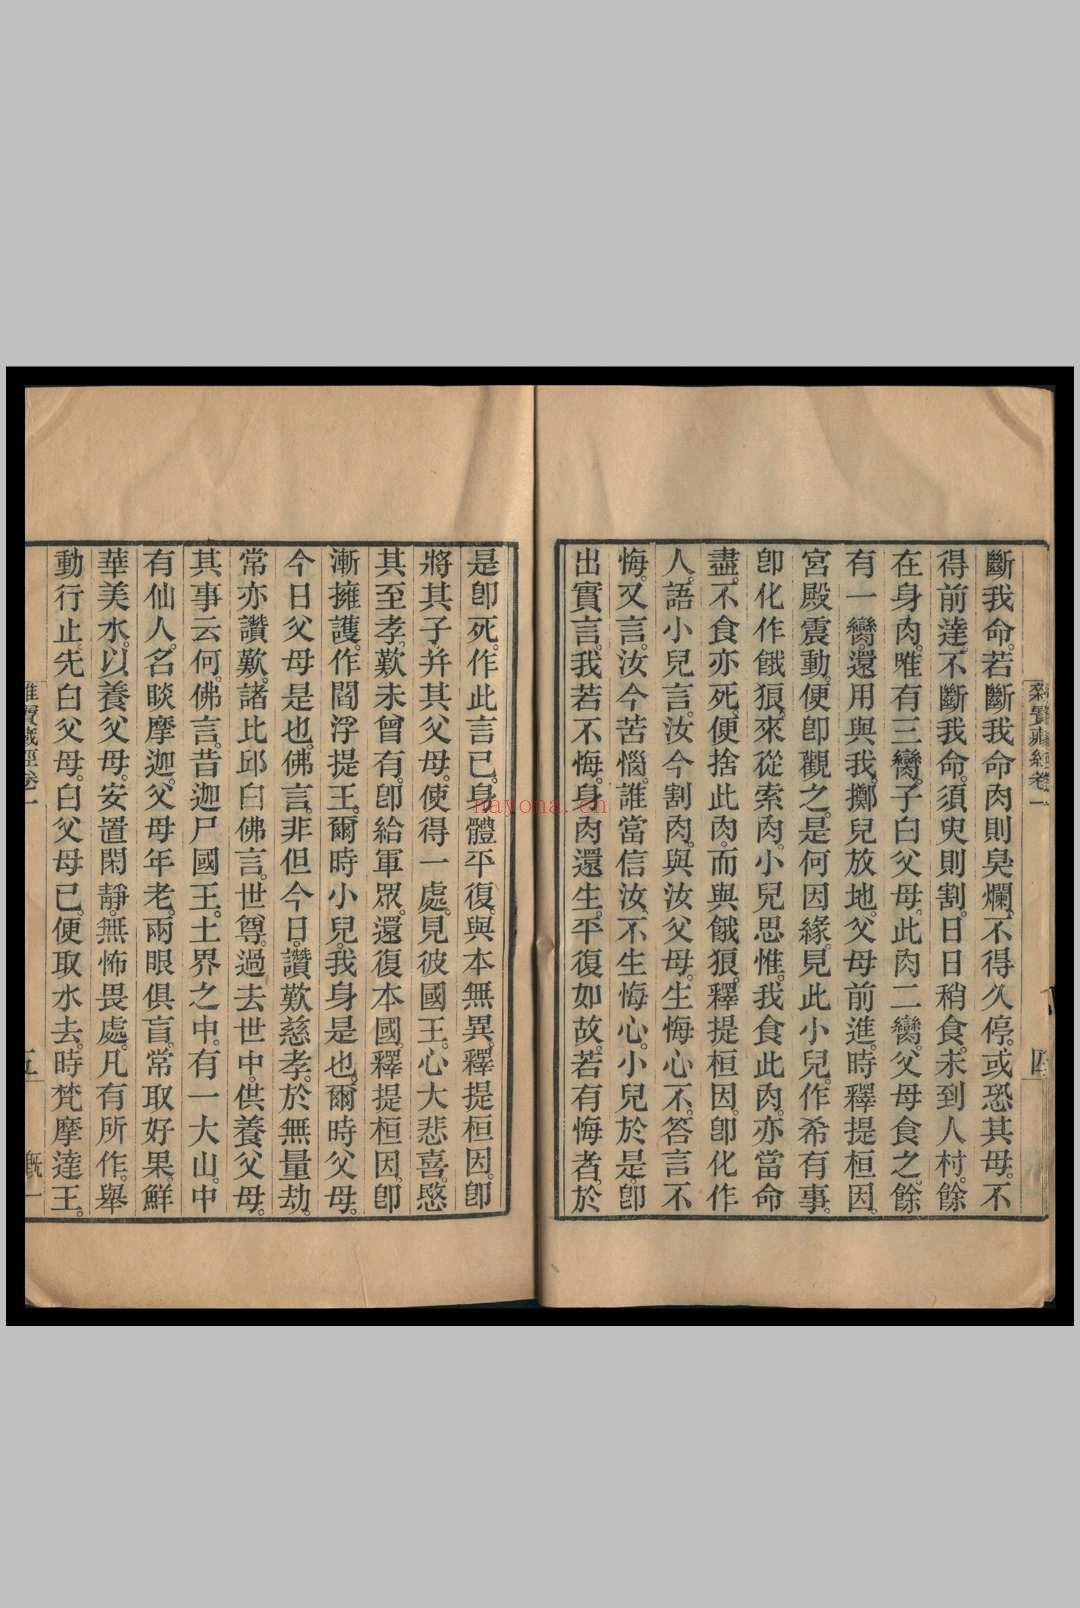 雜寶藏經卷一
四
斷我命。若斷我命。肉則臭爛。不得久停。或恐其母。不
得前達。不斷我命。須臾則割。日日稍食。未到人村。餘
在身肉。唯有三臠。子白父母。此肉二臠。父母食之。餘
有一臠。還用與我。擲兒放地。父母前進。時釋提桓因。
宮殿震動。便卽觀之。是何因緣。見此小兒。作希有事。
卽化作餓狼。來從索肉。小兒思惟。我食此肉。亦當命
盡。不食亦死。便捨此肉。而與餓狼。釋提桓因。卽化作
人。語小兒言。汝今割肉。與汝父母。生悔心不。答言不
悔。又言。汝今苦惱。誰當信汝。不生悔心。小兒於是。卽
出實言。我若不悔。身肉還生。平復如故。若有悔者。於
是卽死。作此言已。身體平復。與本無異。釋提桓因。卽
將其子。幷其父母。使得一處。見彼國王。心大悲喜。愍
其至孝。歎未曾有。卽給軍眾。還復本國。釋提桓因。卽
漸擁護。作閻浮提王。爾時小兒。我身是也。爾時父母。
今日父母是也。佛言。非但今日。讚歎慈孝。於無量劫。
常亦讚歎。諸比邱白佛言。世尊。過去世中。供養父母。
其事云何。佛言。昔迦尸國王。土界之中。有一大山。中
有仙人。名睒摩迦。父母年老。兩眼俱盲。常取好果。鮮
華美水。以養父母。安置閑靜。無怖畏處。凡有所作。舉
動行止。先白父母。白父母已。便取水去。時梵摩達王。
雜寶藏經卷一
五
nayona.cn